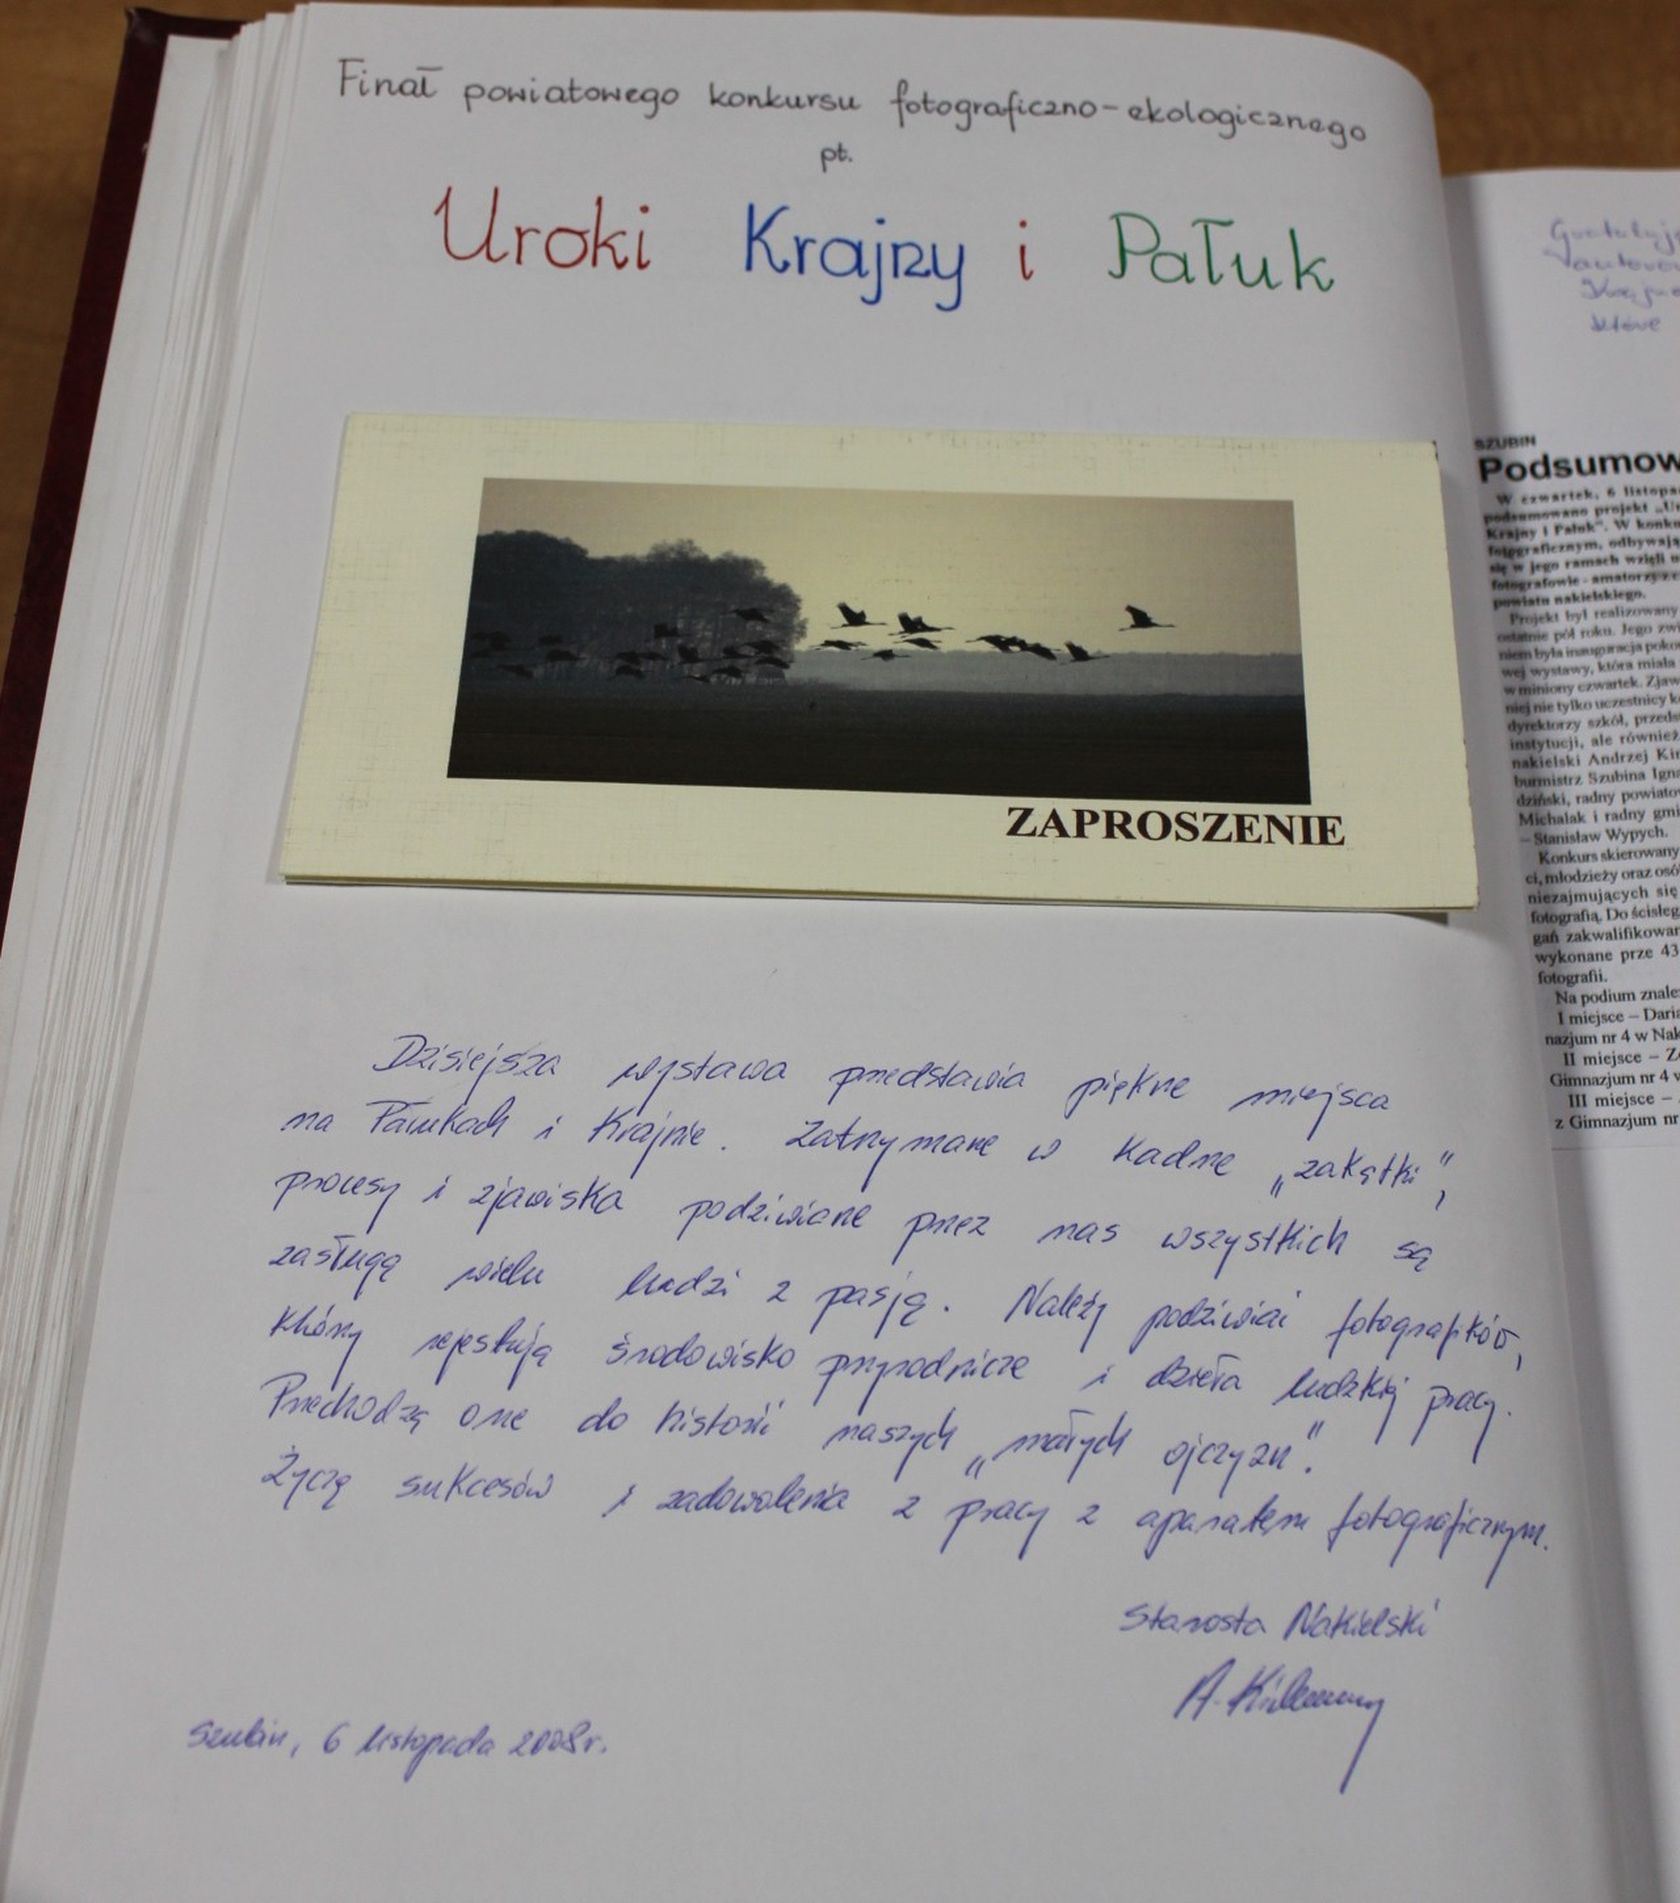 Finał powiatowego konkursu fotograficzno-ekologicznego
pt.
Uroki Krajny i Pałuk
ZAPROSZENIE
Dzisiejsza wystawa przedstawia piękne miejsca
na Pałukach i Krajnie. Zatrzymane w kadrze „zakątki",
procesy i zjawiska podziwiane przez nas wszystkich są
zasługą wielu ludzi z pasją. Należy podziwiać fotografików,
którzy rejestrują środowisko przyrodnicze i dzieła ludzkiej pracy.
Przechodzą one do historii naszych „małych ojczyzn".
Życzę sukcesów i zadowolenia z pracy z aparatem fotograficznym.
Starosta Nakielski
A.
Szubin, 6 listopada 2008r.
które
SZUBIN
Podsumow
W czwartek, 6 listopa
podsumowano projekt „Ur
Krajny i Pałuk". W konku
fotograficznym, odbywają
się w jego ramach wzięli u
fotografowie - amatorzy z
powiatu nakielskiego.
Projekt był realizowany
ostatnie pół roku. Jego zwi
niem była inauguracja poko
wej wystawy, która miała
w miniony czwartek. Zjaw
niej nie tylko uczestnicy k
dyrektorzy szkół, przeds
instytucji, ale również
nakielski Andrzej Kin
burmistrz Szubina Igna
dziński, radny powiatow
Michalak i radny gmi
– Stanisław Wypych.
Konkurs skierowany
ci, młodzieży oraz osó
niezajmujących się
fotografią. Do ścisłeg
gań zakwalifikowan
wykonane prze 43
fotografii.
Na podium znale
I miejsce – Daria
nazjum nr 4 w Nak
II miejsce – Z
Gimnazjum nr 4 w
III miejsce –
z Gimnazjum nr